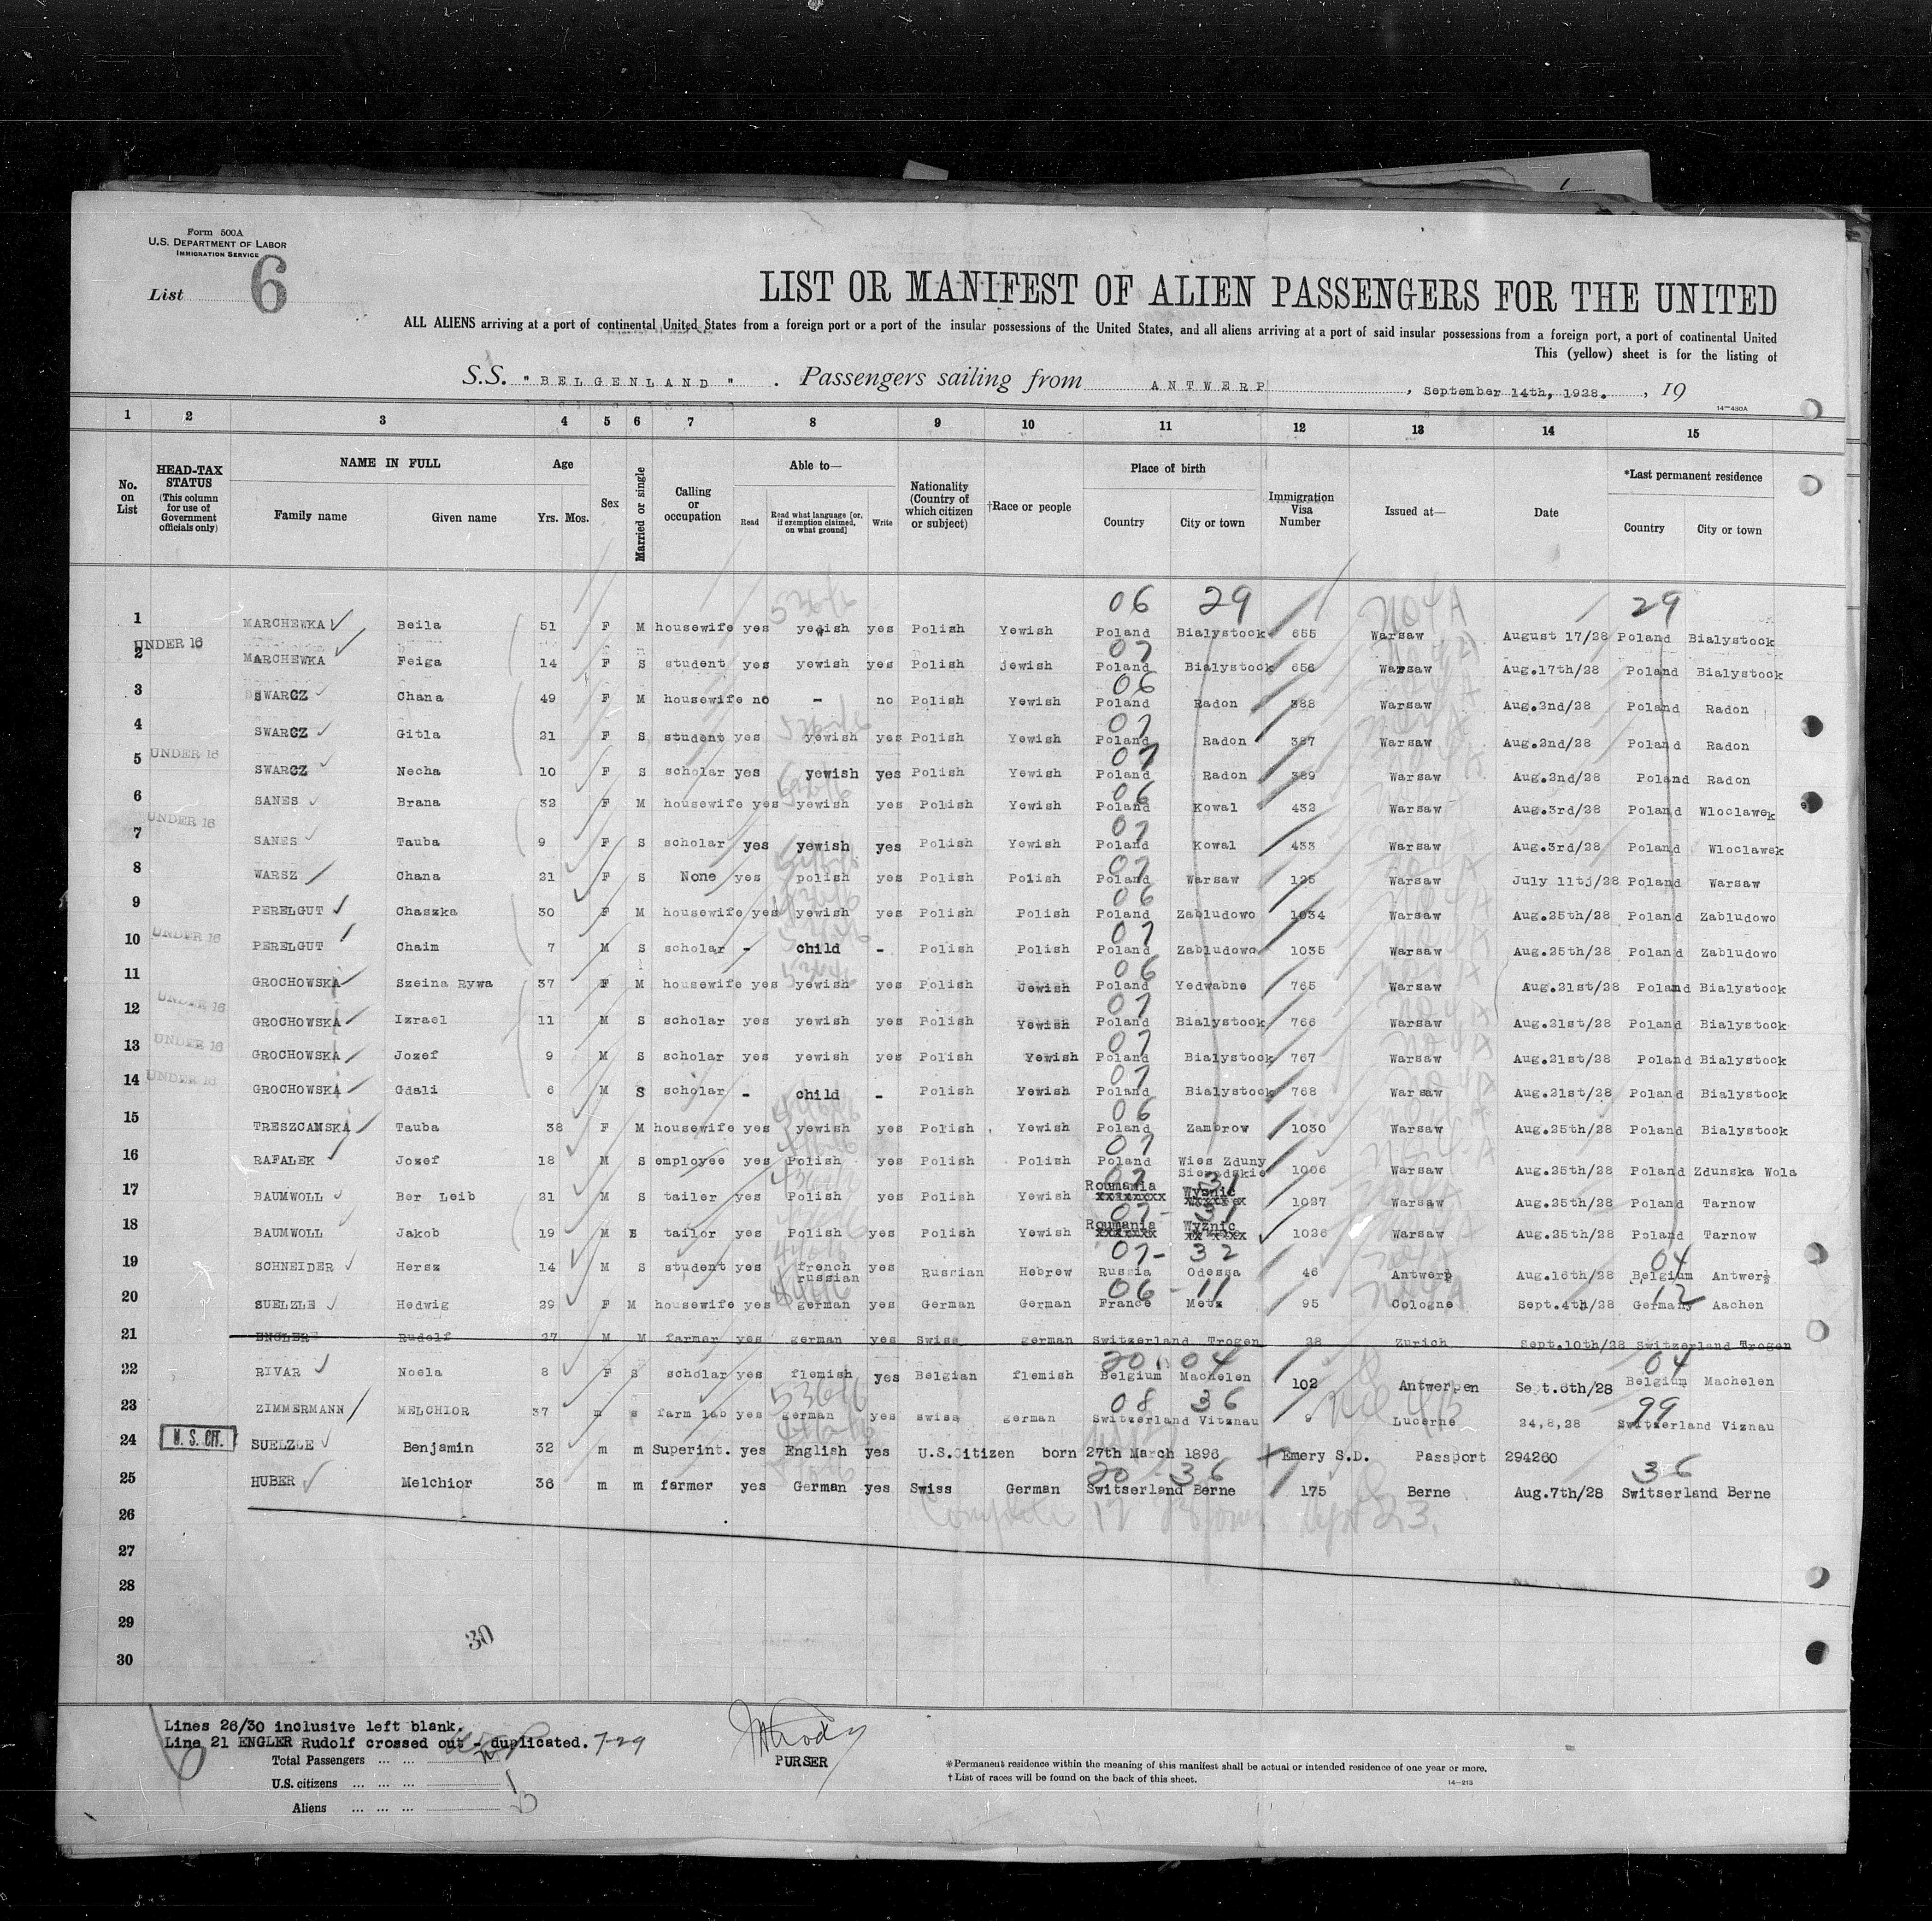 Form 500A
U.S. DEPARTMENT OF LABOR
IMMIGRATION SERVICE
List 6
LIST OR MANIFEST OF ALIEN PASSENGERS FOR THE UNITED
ALL ALIENS arriving at a port of continental United States from a foreign port or a port of the insular possessions of the United States, and all aliens arriving at a port of said insular possessions from a foreign port, a port of continental United
This (yellow) sheet is for the listing of
S.S. "BELGENLAND". Passengers sailing from ANTWERP, September 14th, 1928., 19
14-430A
1 2 3 4 5 6 7 8 9 10 11 12 13 14 15
No. on List
HEAD-TAX STATUS (This column for use of Government officials only)
NAME IN FULL
Family name Given name
Age
Yrs. Mos.
Sex
Married or single
Calling or occupation
Able to—
Read
Read what language [or, if exemption claimed, on what ground]
Write
Nationality (Country of which citizen or subject)
†Race or people
Place of birth
Country City or town
Immigration Visa Number
Issued at—
Date
*Last permanent residence
Country City or town
06 29 29
1 MARCHEWKA Beila 51 F M housewife yes yewish yes Polish Yewish Poland Bialystock 655 Warsaw August 17/28 Poland Bialystock
UNDER 16
07
2 MARCHEWKA Feiga 14 F S student yes yewish yes Polish jewish Poland Bialystock 656 Warsaw Aug.17th/28 Poland Bialystock
06
3 SWARCZ Chana 49 F M housewife no - no Polish Yewish Poland Radon 388 Warsaw Aug.2nd/28 Poland Radon
07
4 SWARCZ Gitla 21 F S student yes yewish yes Polish Yewish Poland Radon 387 Warsaw Aug.2nd/28 Poland Radon
UNDER 16
07
5 SWARCZ Necha 10 F S scholar yes yewish yes Polish Yewish Poland Radon 389 Warsaw Aug.2nd/28 Poland Radon
06
6 SANES Brana 32 F M housewife yes yewish yes Polish Yewish Poland Kowal 432 Warsaw Aug.3rd/28 Poland Wloclawek
UNDER 16
07
7 SANES Tauba 9 F S scholar yes yewish yes Polish Yewish Poland Kowal 433 Warsaw Aug.3rd/28 Poland Wloclawek
07
8 WARSZ Chana 21 F S None yes polish yes Polish Polish Poland Warsaw 125 Warsaw July 11tj/28 Poland Warsaw
06
9 PERELGUT Chaszka 30 F M housewife yes yewish yes Polish Polish Poland Zabludowo 1034 Warsaw Aug.25th/28 Poland Zabludowo
UNDER 16
07
10 PERELGUT Chaim 7 M S scholar - child - Polish Polish Poland Zabludowo 1035 Warsaw Aug.25th/28 Poland Zabludowo
06
11 GROCHOWSKA Szeina Rywa 37 F M housewife yes yewish yes Polish Jewish Poland Yedwabne 765 Warsaw Aug.21st/28 Poland Bialystock
UNDER 16
07
12 GROCHOWSKA Izrael 11 M S scholar yes yewish yes Polish Yewish Poland Bialystock 766 Warsaw Aug.21st/28 Poland Bialystock
UNDER 16
07
13 GROCHOWSKA Jozef 9 M S scholar yes yewish yes Polish Yewish Poland Bialystock 767 Warsaw Aug.21st/28 Poland Bialystock
UNDER 16
07
14 GROCHOWSKA Gdali 6 M S scholar - child - Polish Yewish Poland Bialystock 768 Warsaw Aug.21st/28 Poland Bialystock
06
15 TRESZCAMSKA Tauba 38 F M housewife yes yewish yes Polish Yewish Poland Zambrow 1030 Warsaw Aug.25th/28 Poland Bialystock
07
16 RAFALEK Jozef 18 M S employee yes Polish yes Polish Polish Poland Wies Zduny Sieradskie 1006 Warsaw Aug.25th/28 Poland Zdunska Wola
07 31
17 BAUMWOLL Ber Leib 21 M S tailer yes Polish yes Polish Yewish Roumania Wyznic 1027 Warsaw Aug.25th/28 Poland Tarnow
07- 31
18 BAUMWOLL Jakob 19 M S tailor yes Polish yes Polish Yewish Roumania Wyznic 1026 Warsaw Aug.25th/28 Poland Tarnow
07- 32 04
19 SCHNEIDER Hersz 14 M S student yes french russian yes Russian Hebrew Russia Odessa 46 Antwerp Aug.16th/28 Belgium Antwerp
06 - 11 12
20 SUELZLE Hedwig 29 F M housewife yes german yes German German France Metz 95 Cologne Sept.4th/28 Germany Aachen
21 ENGLER Rudolf 27 M M farmer yes german yes Swiss german Switzerland Trogen 28 Zurich Sept.10th/28 Switzerland Trogen
20 04 04
22 RIVAR Noela 8 F S scholar yes flemish yes Belgian flemish Belgium Machelen 102 Antwerpen Sept.6th/28 Belgium Machelen
08 36 99
23 ZIMMERMANN MELCHIOR 37 m s farm lab yes german yes swiss german Switzerland Vitznau 9 Lucerne 24,8,28 Switzerland Viznau
24 U.S. CIT. SUELZLE Benjamin 32 m m Superint. yes English yes U.S.Citizen born 27th March 1896 Emery S.D. Passport 294260
20 - 36 36
25 HUBER Melchior 36 m m farmer yes German yes Swiss German Switserland Berne 175 Berne Aug.7th/28 Switserland Berne
26
27
28
29
30
30
Lines 26/30 inclusive left blank.
Line 21 ENGLER Rudolf crossed out - duplicated. 7-29
Total Passengers
U.S. citizens 1
Aliens
PURSER
*Permanent residence within the meaning of this manifest shall be actual or intended residence of one year or more.
†List of races will be found on the back of this sheet.
14-213